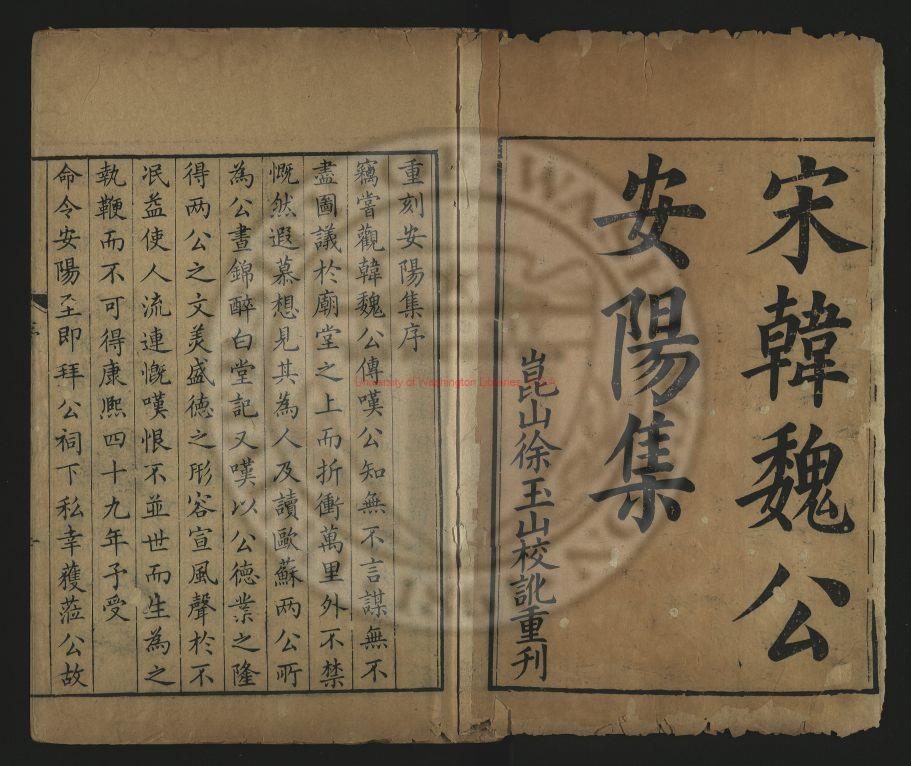 宋韓魏公
安陽集
崑山徐玉山校訛重刊
重刻安陽集序
竊嘗觀韓魏公傳嘆公知無不言謀無不
盡圖議於廟堂之上而折衝萬里外不禁
慨然遐慕想見其為人及讀歐蘇兩公所
為公晝錦醉白堂記又嘆以公德業之隆
得两公之文美盛德之形容宣風聲於不
泯益使人流連慨嘆恨不並世而生為之
執鞭而不可得康熈四十九年予受
命令安陽至即拜公祠下私幸蒞公故
University of Washington Libraries